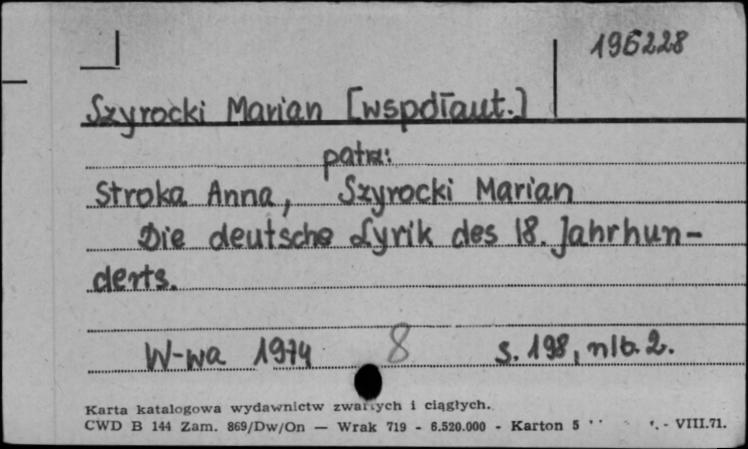 196228
Szyrocki Marian [współaut.]
patrz:
Stroka Anna, Szyrocki Marian
Die deutsche Lyrik des 18. Jahrhun-
derts.
W-wa 1974 8 s. 198, nlb. 2.
Karta katalogowa wydawnictw zwartych i ciągłych.
CWD B 144 Zam. 869/Dw/On — Wrak 719 - 6.520.000 - Karton 5 - VIII.71.